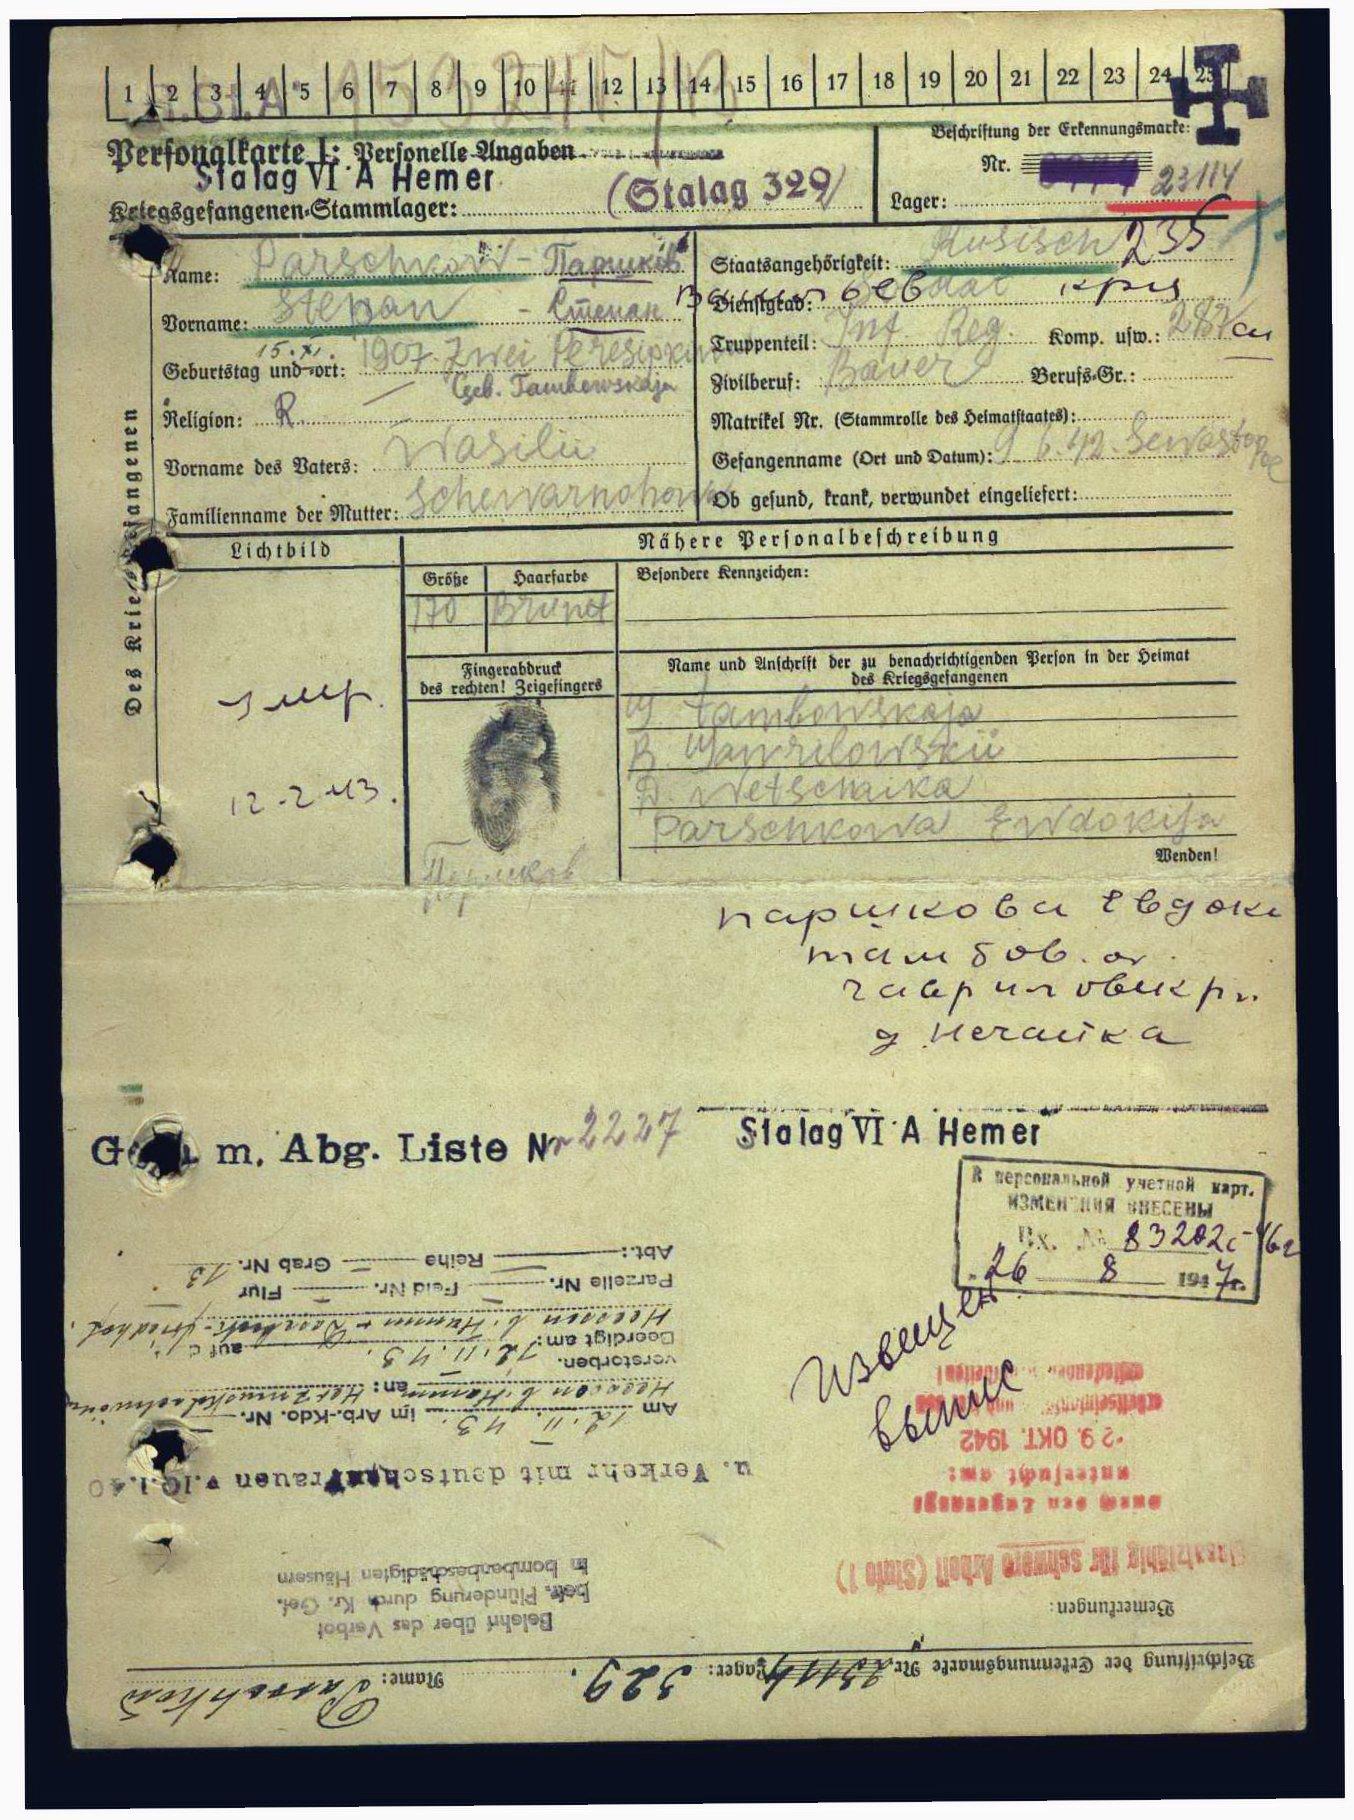 1 2 3 4 5 6 7 8 9 10 11 12 13 14 15 16 17 18 19 20 21 22 23 24 25
Personalkarte I: Personelle Angaben
Stalag VI A Hemer
Kriegsgefangenen-Stammlager: (Stalag 329)
Beschriftung der Erkennungsmarke:
Nr. 23114
Lager:
Des Kriegsgefangenen
Name: Parschkow - Паршков
Vorname: Stepan - Степан
Geburtstag und -ort: 15.XI. 1907. Zwei
Geb. Tambowskaja
Religion: R.
Vorname des Vaters: Wasilii
Familienname der Mutter:
Staatsangehörigkeit: Rusisch 235
Dienstgrad: Soldat
Truppenteil: Inf. Reg. Komp. usw.:
Zivilberuf: Bauer Berufs-Gr.:
Matrikel Nr. (Stammrolle des Heimatstaates):
Gefangenname (Ort und Datum): 9 6.42. Sewastopol
Ob gesund, krank, verwundet eingeliefert:
Lichtbild
Nähere Personalbeschreibung
Größe Haarfarbe
170 Brunet
Besondere Kennzeichen:
Fingerabdruck
des rechten! Zeigefingers
Name und Anschrift der zu benachrichtigenden Person in der Heimat
des Kriegsgefangenen
Tambowskaja
R. Gawrilowskii
D. Netschaika
Parschkowa Ewdokija
умр.
12-2-43.
Паршков
Wenden!
паршкова Евдоки
тамбов. о
гавриловск р н.
д нечайка
m. Abg. Liste Nr 2227
Stalag VI A Hemer
В персональной учетной карт.
ИЗМЕНЕНИЯ ВНЕСЕНЫ
Вх. № 83202с-46г
26 8 1947г.
извещен
выпис
Beschriftung der Erkennungsmarke Nr. 23114 Lager: 329. Name: Parschkow
Bemerkungen:
Belehrt über das Verbot
betr. Plünderung durch Kr. Gef.
in bombenbeschädigten Häusern
Einsatzfähig für schwere Arbeit (Stufe 1)
u. Verkehr mit deutschen Frauen v. 10.1.40
untersucht am:
29. OKT. 1942
Am 12. II. 43. im Arb.-Kdo. Nr.
Heessen b. Hamm an: Herzmuskelschwäche
verstorben.
Beerdigt am: 12. II. 43. auf d
Heessen b. Hamm
Parzelle Nr. Feld Nr. Flur
Abt.: Reihe Grab Nr. 13